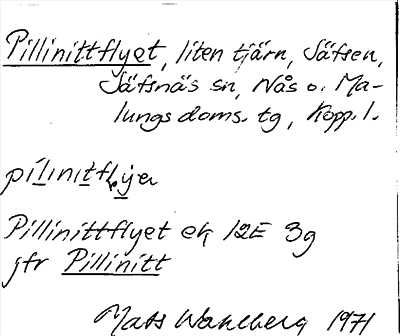 Pillinittflyet, liten tjärn, Säfsen,
Säfsnäs sn, Nås o. Ma-
lungs doms. tg, Kopp. l.
Pillinittflyet ek 12E 3g
jfr Pillinitt
Mats Wahlberg 1971